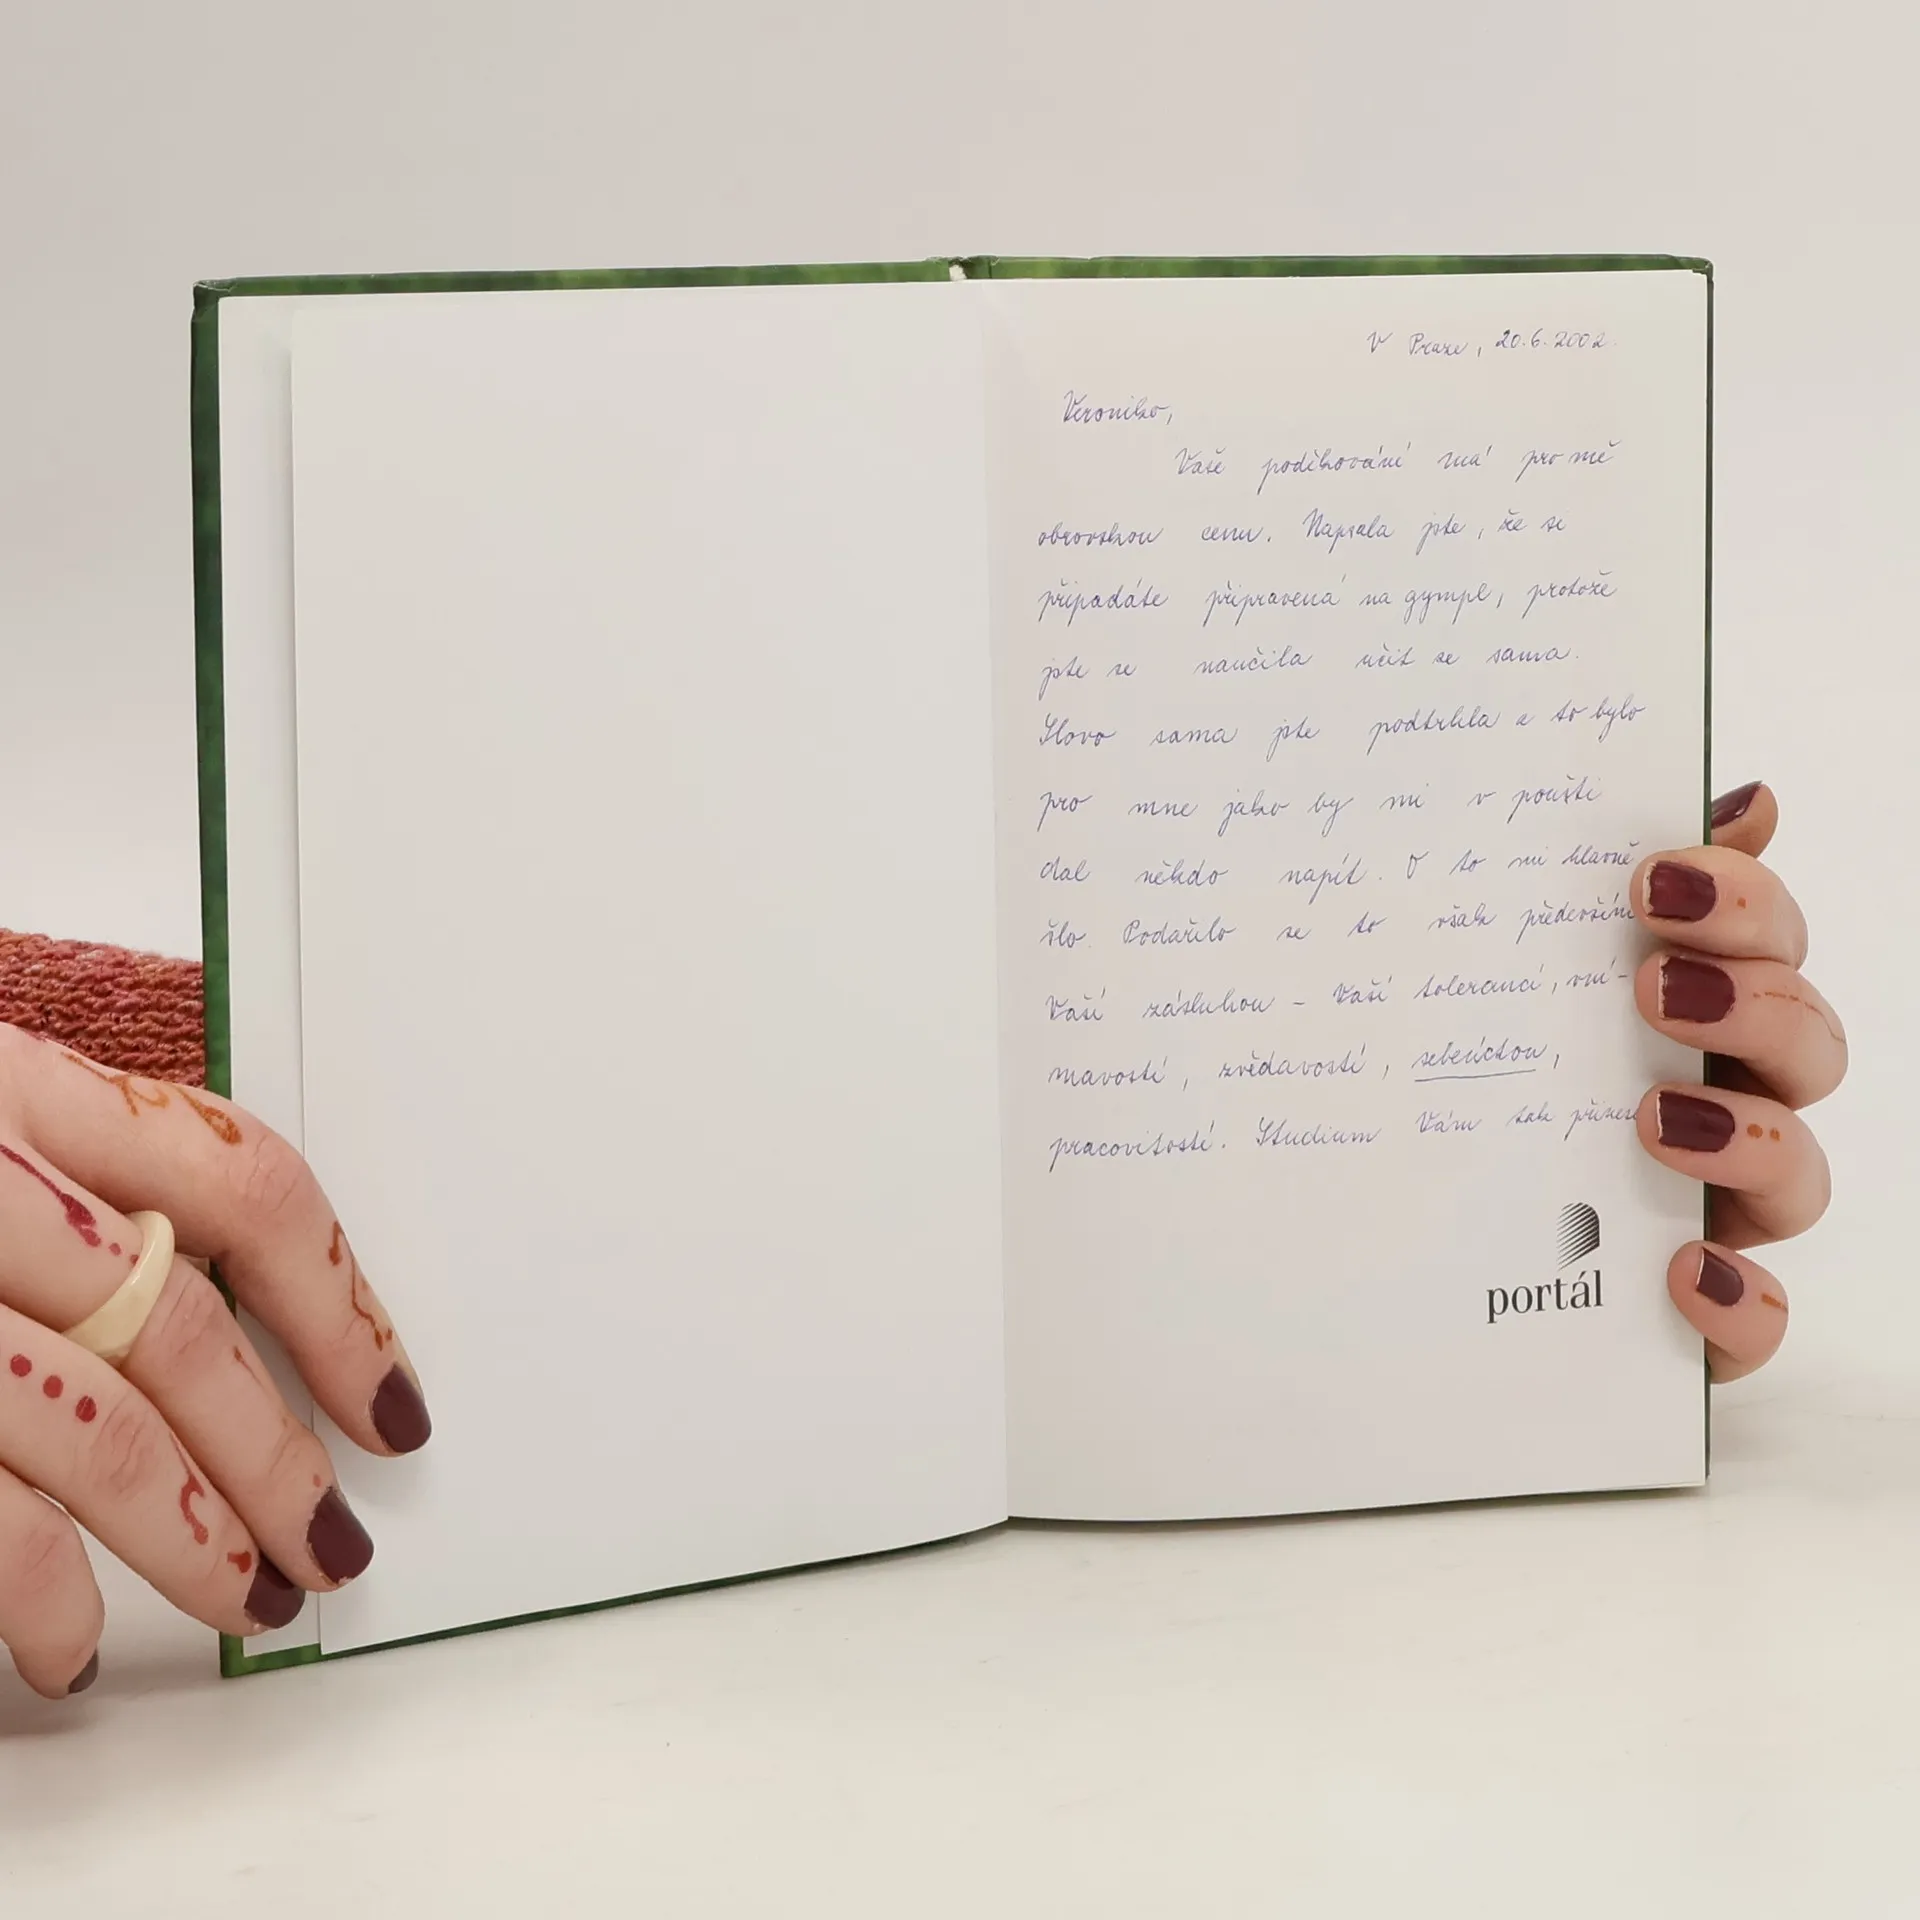 V Praze, 20.6.2002.
Veroniko,
Vaše poděkování má pro mě
obrovskou cenu. Napsala jste, že si
připadáte připravená na gympl, protože
jste se naučila učit se sama.
Slovo sama jste podtrhla a to bylo
pro mne jako by mi v poušti
dal někdo napít. O to mi hlavně
šlo. Podařilo se to však především
Vaší zásluhou – Vaší tolerancí, vní-
mavostí, zvědavostí, sebeúctou,
pracovitostí. Studium Vám tak přinese
portál